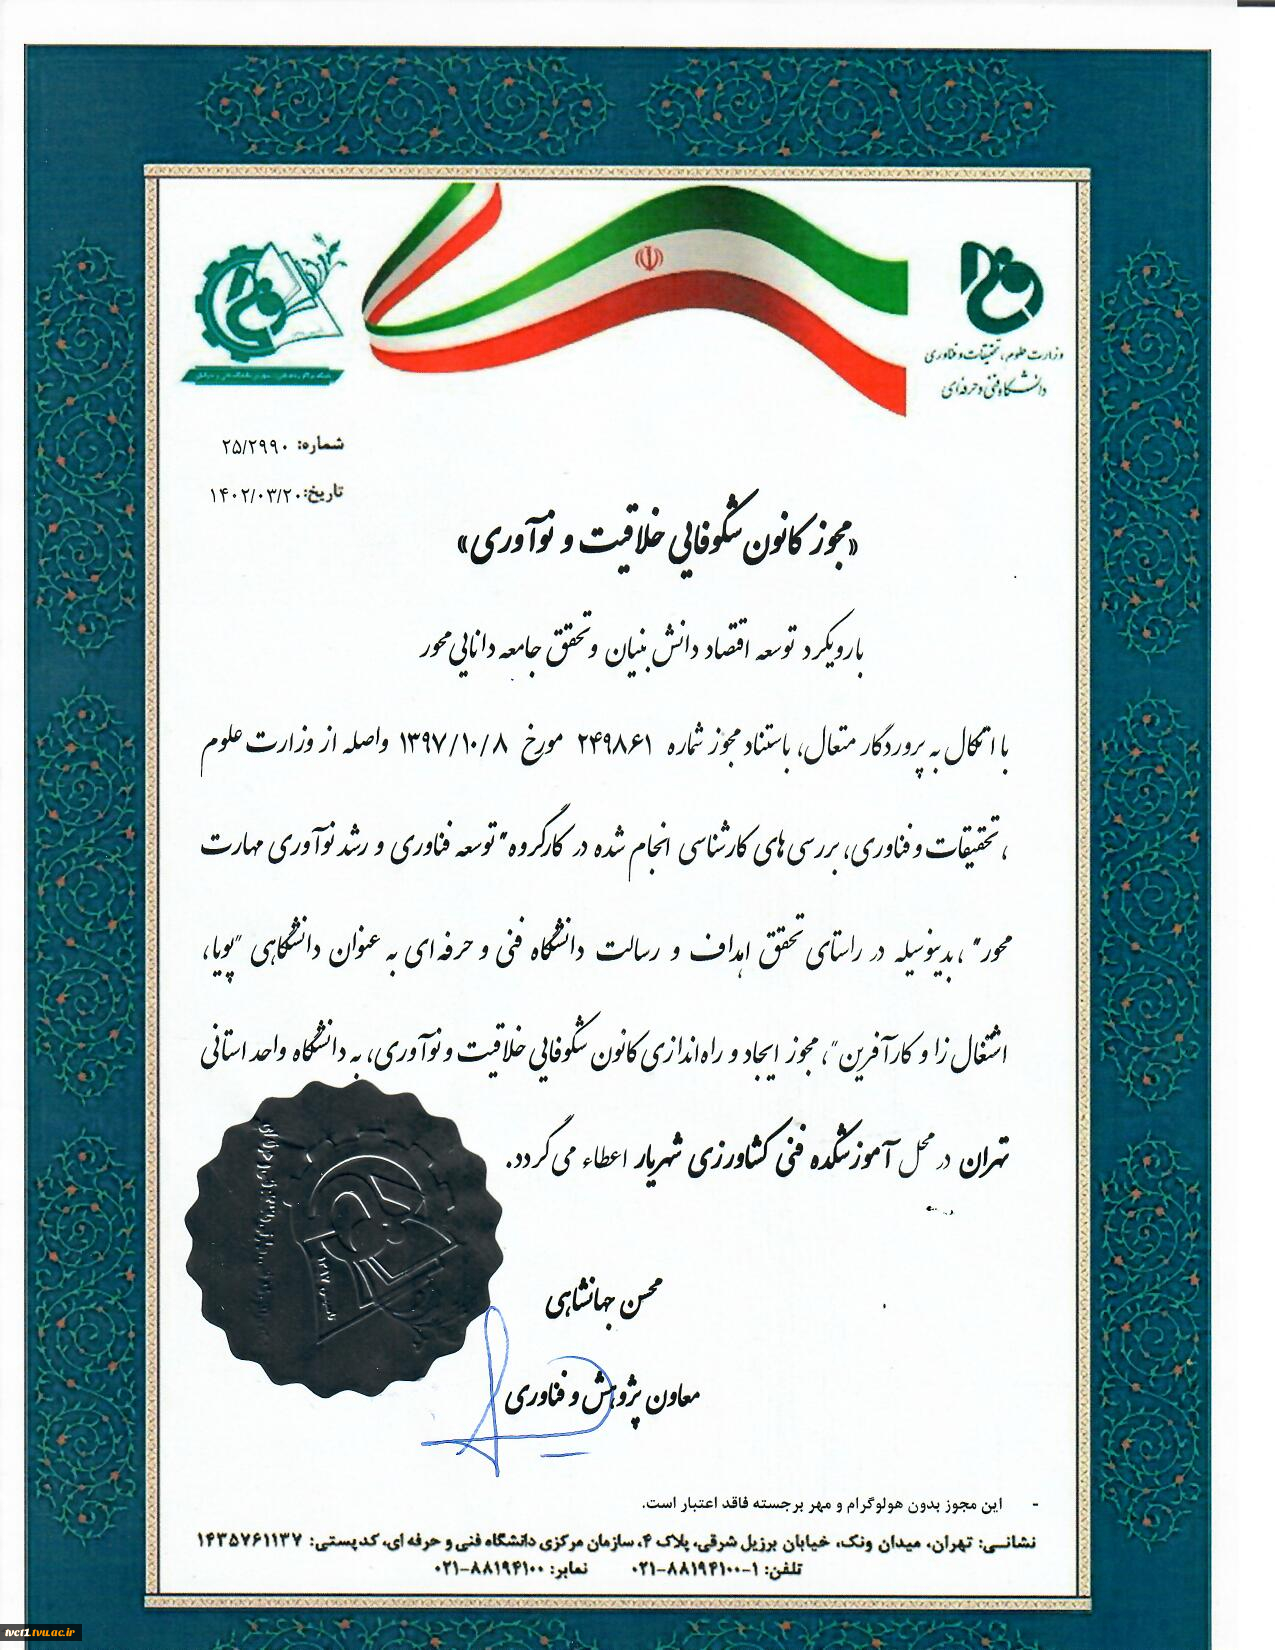 وزارت علوم، تحقیقات و فناوری
دانشگاه فنی و حرفه‌ای
شماره: ۲۵/۲۹۹۰
تاریخ: ۱۴۰۲/۰۳/۲۰
«مجوز کانون شکوفایی خلاقیت و نوآوری»
با رویکرد توسعه اقتصاد دانش بنیان و تحقق جامعه دانایی محور
با اتکال به پروردگار متعال، باستناد مجوز شماره ۲۴۹۸۶۱ مورخ ۱۳۹۷/۱۰/۸ واصله از وزارت علوم
، تحقیقات و فناوری، بررسی‌های کارشناسی انجام شده در کارگروه "توسعه فناوری و رشد نوآوری مهارت
محور"، بدینوسیله در راستای تحقق اهداف و رسالت دانشگاه فنی و حرفه ای به عنوان دانشگاهی "پویا،
اشتغال زا و کارآفرین"، مجوز ایجاد و راه‌اندازی کانون شکوفایی خلاقیت و نوآوری، به دانشگاه واحد استانی
تهران در محل آموزشکده فنی کشاورزی شهریار اعطاء می‌گردد.
محسن جهانشاهی
معاون پژوهش و فناوری
- این مجوز بدون هولوگرام و مهر برجسته فاقد اعتبار است.
نشانی: تهران، میدان ونک، خیابان برزیل شرقی، پلاک ۴، سازمان مرکزی دانشگاه فنی و حرفه ای، کدپستی: ۱۴۳۵۷۶۱۱۳۷
تلفن: ۱-۸۸۱۹۴۱۰۰-۰۲۱ نمابر: ۸۸۱۹۴۱۰۰-۰۲۱
tvct1.tvu.ac.ir